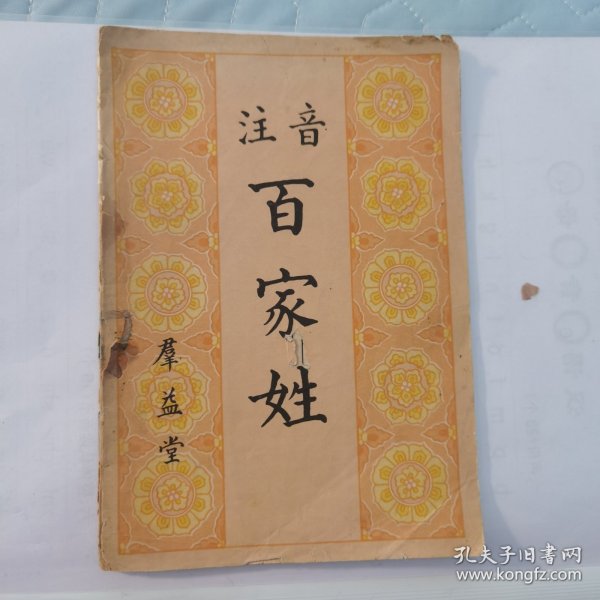 注音
百家姓
羣益堂
孔夫子旧书网
www.kongfz.com